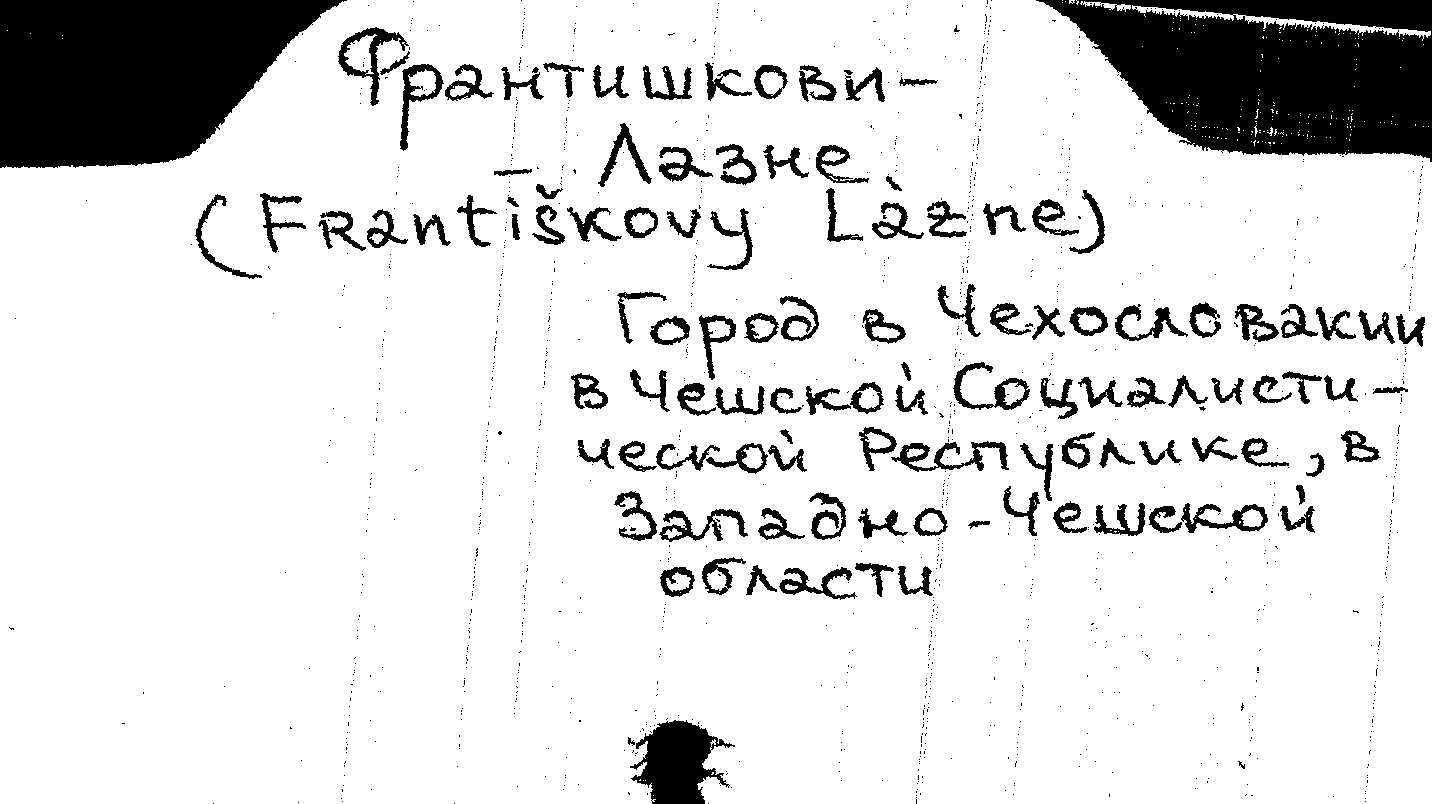 Франтишкови-
- Лазне
(Františkovy Làzne)
Город в Чехословакии
в Чешской Социалисти-
ческой Республике, в
Западно-Чешской
области